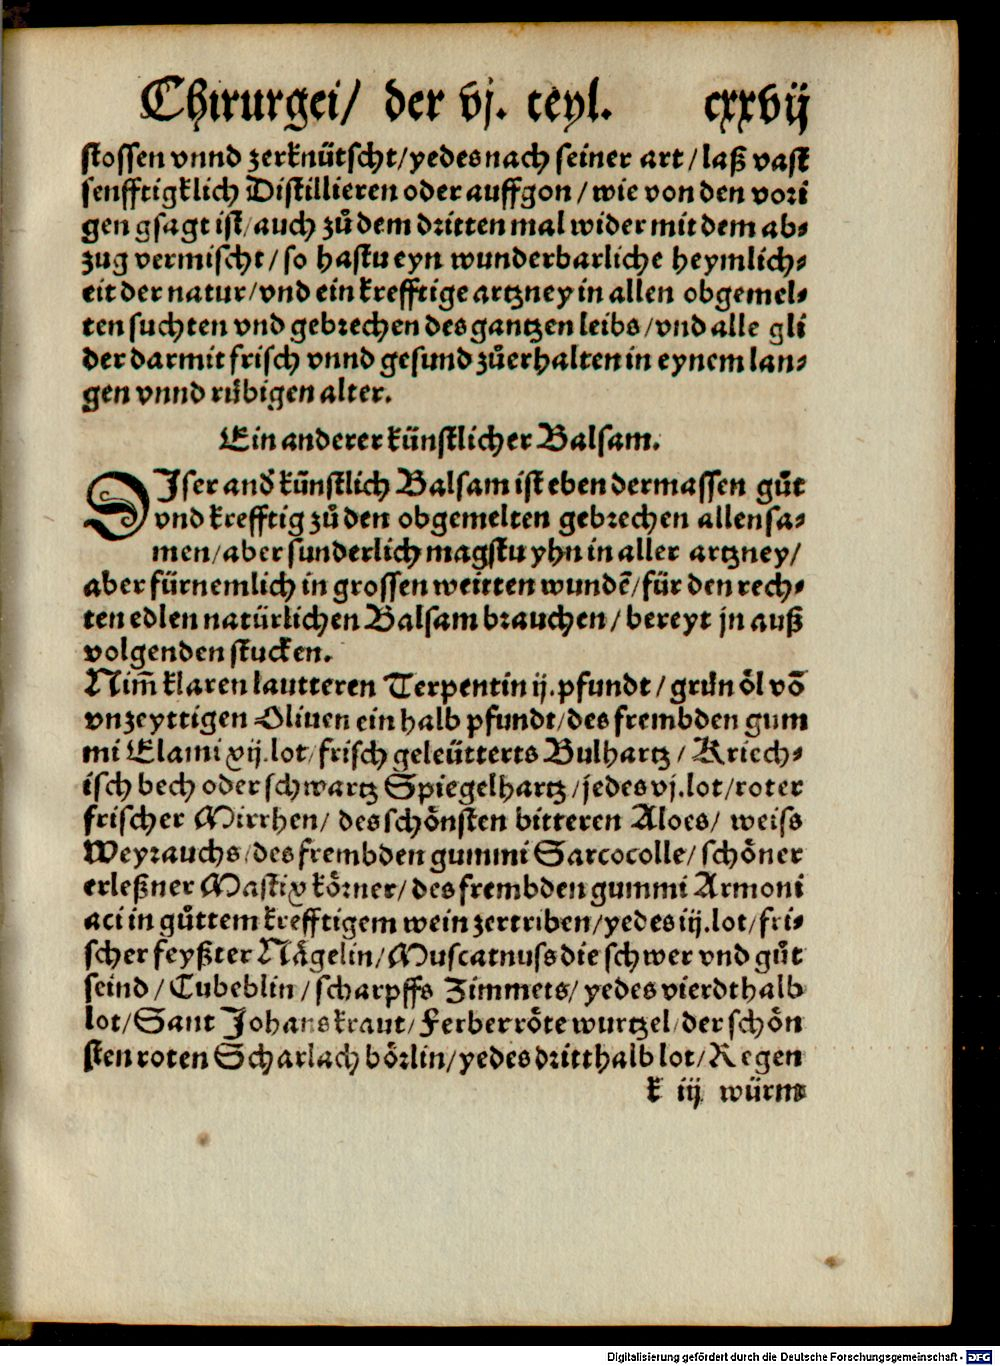 Chirurgei/ der vj. teyl. cxxvij
stossen vnnd zerknütscht/yedes nach seiner art/laß vast
senfftigklich Distillieren oder auffgon/wie von den vori
gen gsagt ist/auch zů dem dritten mal wider mit dem ab⸗
zug vermischt/so hastu eyn wunderbarliche heymlich⸗
eit der natur/vnd ein krefftige artzney in allen obgemel⸗
ten suchten vnd gebrechen des gantzen leibs/vnd alle gli
der darmit frisch vnnd gesund zů erhalten in eynem lan⸗
gen vnnd rübigen alter.
Ein anderer künstlicher Balsam.
DIser andř künstlich Balsam ist eben dermassen gůt
vnd krefftig zů den obgemelten gebrechen allensa⸗
men/aber sunderlich magstu yhn in aller artzney/
aber fürnemlich in grossen weitten wundē/für den rech⸗
ten edlen natürlichen Balsam brauchen/bereyt jn auß
volgenden stucken.
Nim̄ klaren lautteren Terpentin ij.pfundt/grün öl vō
vnzeyttigen Oliuen ein halb pfundt/des frembden gum
mi Elami xij.lot/frisch geleütterts Bulhartz/Kriech⸗
isch bech oder schwartz Spiegelhartz/jedes vj.lot/roter
frischer Mirrhen/des schönsten bitteren Aloes/weiss
Weyrauchs/des frembden gummi Sarcocolle/schöner
erleßner Mastix körner/des frembden gummi Armoni
aci in gůttem krefftigem wein zertriben/yedes iij.lot/fri⸗
scher feyßter Nägelin/Muscatnuss die schwer vnd gůt
seind/Cubeblin/scharpffs Zimmets/yedes vierdthalb
lot/Sant Johans kraut/Ferberröte wurtzel/der schön
sten roten Scharlach börlin/yedes dritthalb lot/Regen
k iij würm
Digitalisierung gefördert durch die Deutsche Forschungsgemeinschaft - DFG